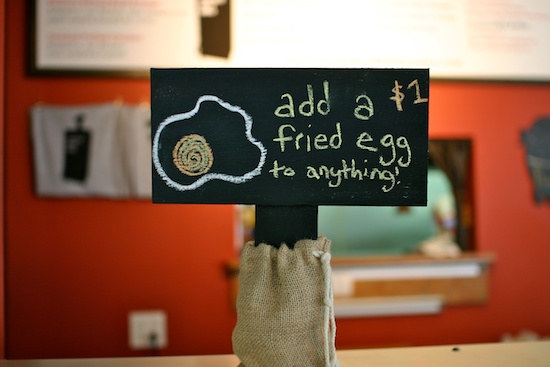 add a $1
fried egg
to anything!